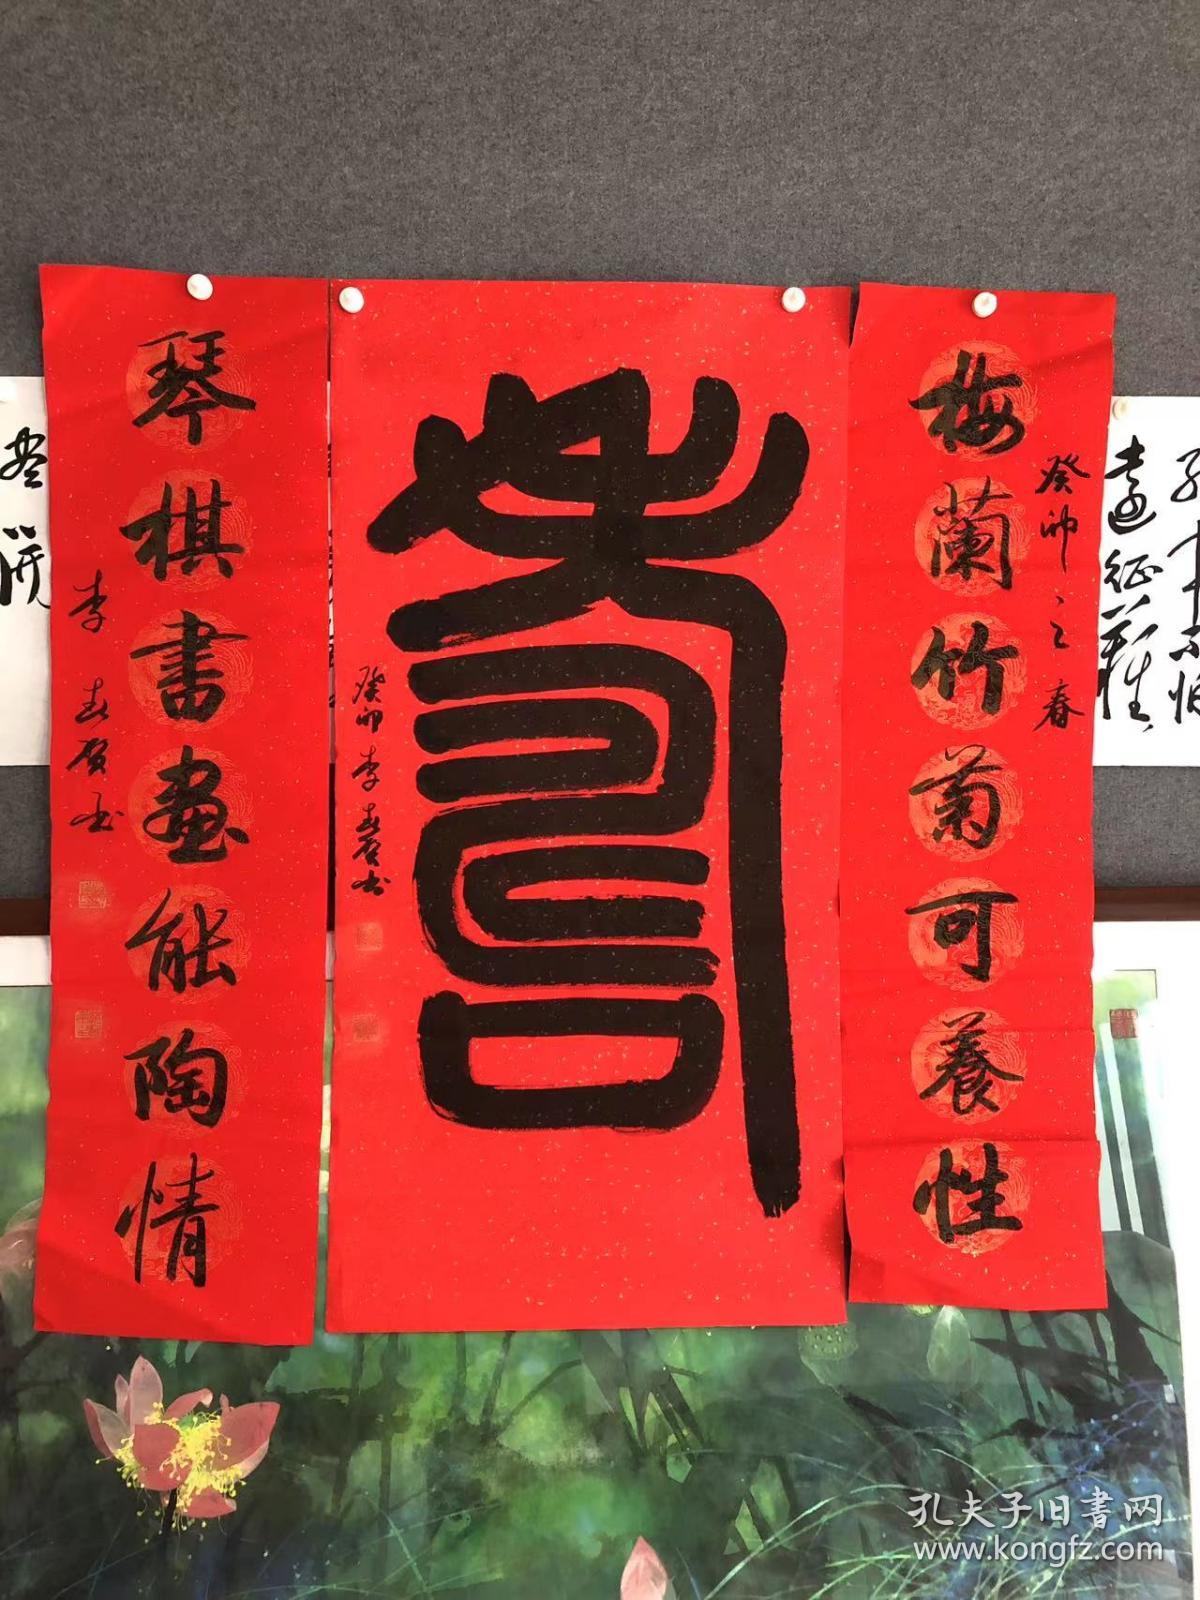 梅蘭竹菊可養性
癸卯之春
壽
癸卯李春啓书
琴棋書畫能陶情
李春啓书
遠征難
孔夫子旧書网
www.kongfz.com